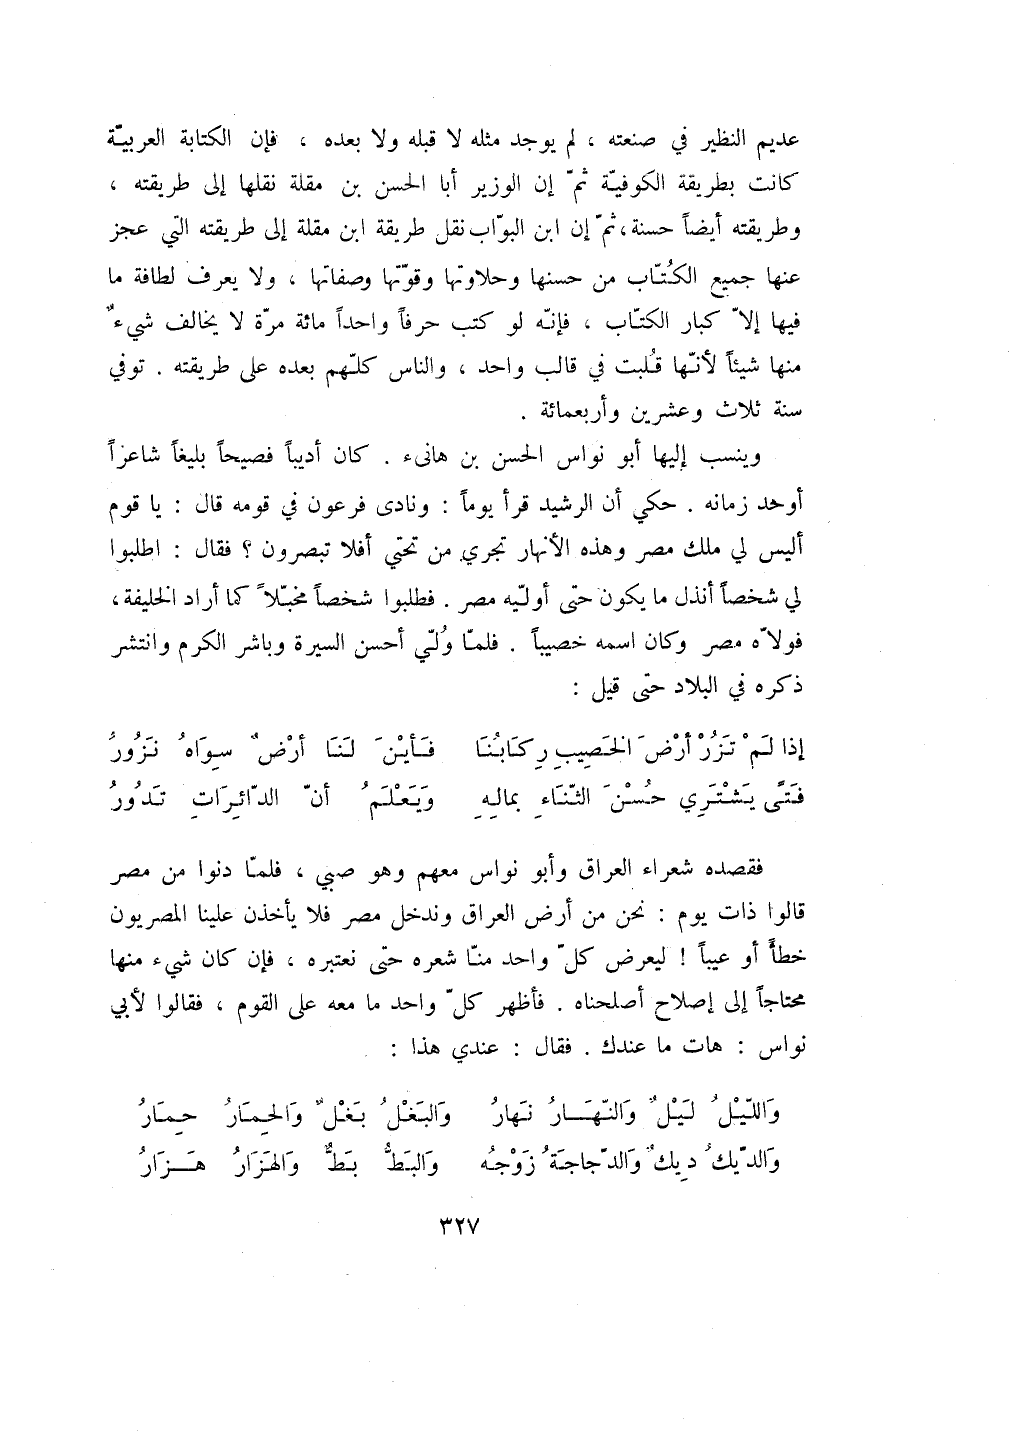 عديم النظير في صنعته ، لم يوجد مثله لا قبله ولا بعده ، فإن الكتابة العربيّة
كانت بطريقة الكوفيّة ثمّ إن الوزير أبا الحسن بن مقلة نقلها إلى طريقته ،
وطريقته أيضاً حسنة، ثمّ إن ابن البوّاب نقل طريقة ابن مقلة إلى طريقته التي عجز
عنها جميع الكُتّاب من حسنها وحلاوتها وقوّتها وصفاتها ، ولا يعرف لطافة ما
فيها إلاّ كبار الكتّاب ، فإنّه لو كتب حرفاً واحداً مائة مرّة لا يخالف شيءٌ
منها شيئاً لأنّها قُلبت في قالب واحد ، والناس كلّهم بعده على طريقته . توفي
سنة ثلاث وعشرين وأربعمائة .
وينسب إليها أبو نواس الحسن بن هانىء . كان أديباً فصيحاً بليغاً شاعراً
أوحد زمانه . حكي أن الرشيد قرأ يوماً : ونادى فرعون في قومه قال : يا قوم
أليس لي ملك مصر وهذه الأنهار تجري من تحتي أفلا تبصرون ؟ فقال : اطلبوا
لي شخصاً أنذل ما يكون حتى أولّيه مصر . فطلبوا شخصاً مخبّلاً كما أراد الخليفة،
فولاّه مصر وكان اسمه خصيباً . فلمّا وُلّي أحسن السيرة وباشر الكرم وانتشر
ذكره في البلاد حتى قيل :
إذا لَمْ تَزُرْ أرْضَ الخَصِيبِ رِكَابُنَا فَأيْنَ لَنَا أرْضٌ سِوَاهُ نَزُورُ
فَتًى يَشْتَرِي حُسْنَ الثّنَاءِ بمالِهِ وَيَعْلَمُ أنّ الدّائِرَاتِ تَدُورُ
فقصده شعراء العراق وأبو نواس معهم وهو صبي ، فلمّا دنوا من مصر
قالوا ذات يوم : نحن من أرض العراق وندخل مصر فلا يأخذن علينا المصريون
خطأً أو عيباً ! ليعرض كلّ واحد منّا شعره حتى نعتبره ، فإن كان شيء منها
محتاجاً إلى إصلاح أصلحناه . فأظهر كلّ واحد ما معه على القوم ، فقالوا لأبي
نواس : هات ما عندك . فقال : عندي هذا :
وَاللّيْلُ لَيْلٌ وَالنّهَارُ نَهارُ وَالبَغْلُ بَغْلٌ وَالحِمَارُ حِمَارُ
وَالدّيكُ دِيكٌ وَالدّجاجَةُ زَوْجُه وَالبَطُّ بَطٌّ وَالهَزَارُ هَزَارُ
٣٢٧